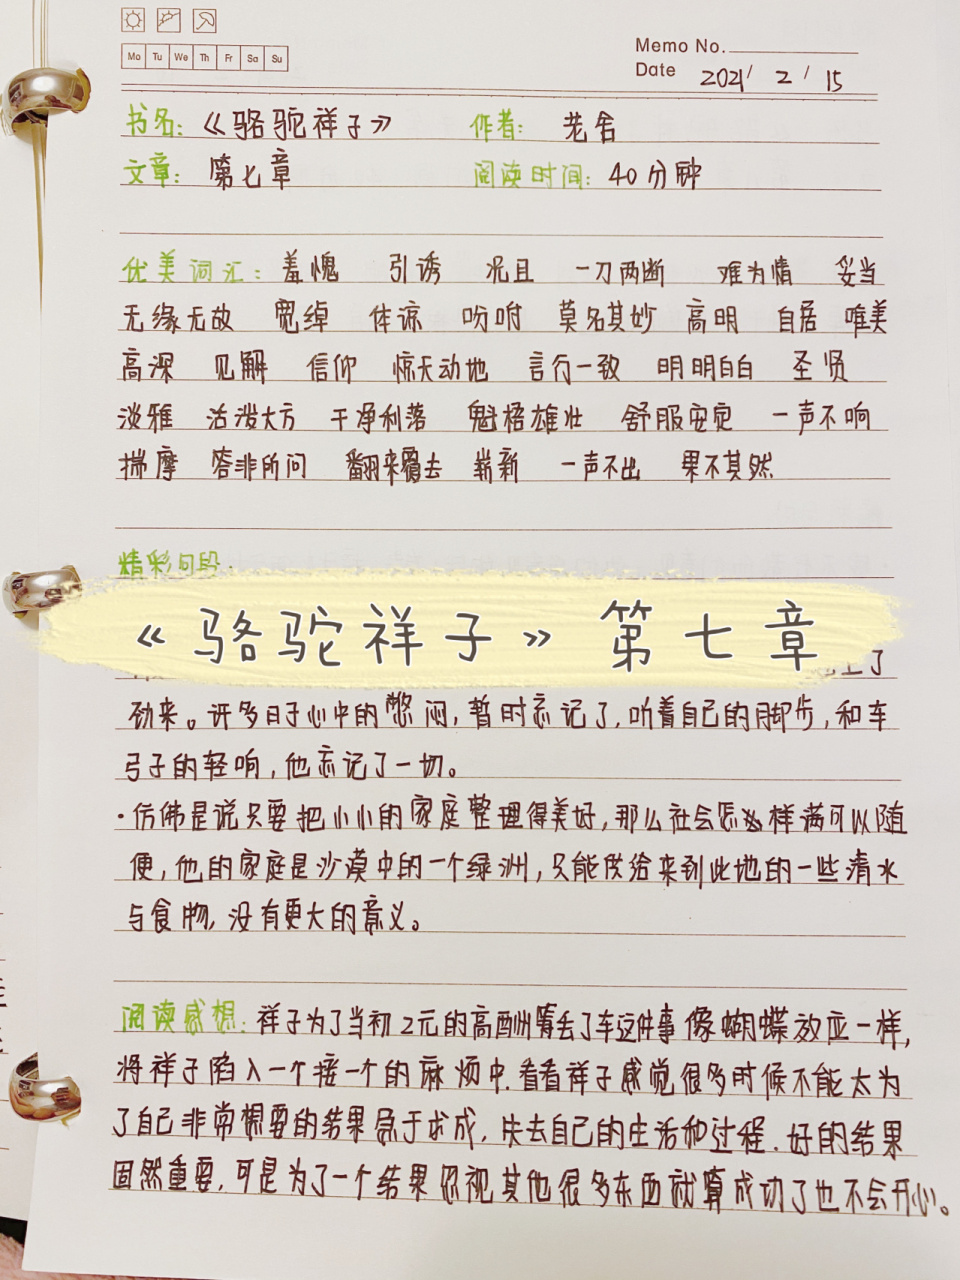 Mo Tu We Th Fr Sa Su
Memo No.
Date 2021/ 2 / 15
书名:《骆驼祥子》 作者: 老舍
文章: 第七章 阅读时间: 40分钟
优美词汇: 羞愧 引诱 况且 一刀两断 难为情 妥当
无缘无故 宽绰 体谅 吩咐 莫名其妙 高明 自居 唯美
高深 见解 信仰 惊天动地 言行一致 明明白白 圣贤
淡雅 活泼大方 干净利落 魁梧雄壮 舒服安定 一声不响
揣摩 答非所问 翻来覆去 崭新 一声不出 果不其然
精彩句段:
《骆驼祥子》第七章
上了
劲来。许多日子心中的憋闷,暂时忘记了,听着自己的脚步,和车
弓子的轻响,他忘记了一切。
·仿佛是说只要把小小的家庭整理得美好,那么社会怎样满可以随
便,他的家庭是沙漠中的一个绿洲,只能供给来到此地的一些清水
与食物,没有更大的意义。
阅读感想: 祥子为了当初2元的高酬筹丢了车这件事像蝴蝶效应一样,
将祥子陷入一个接一个的麻烦中.看看祥子感觉很多时候不能太为
了自己非常想要的结果急于求成,失去自己的生活和过程.好的结果
固然重要,可是为了一个结果忽视其他很多东西就算成功了也不会开心。